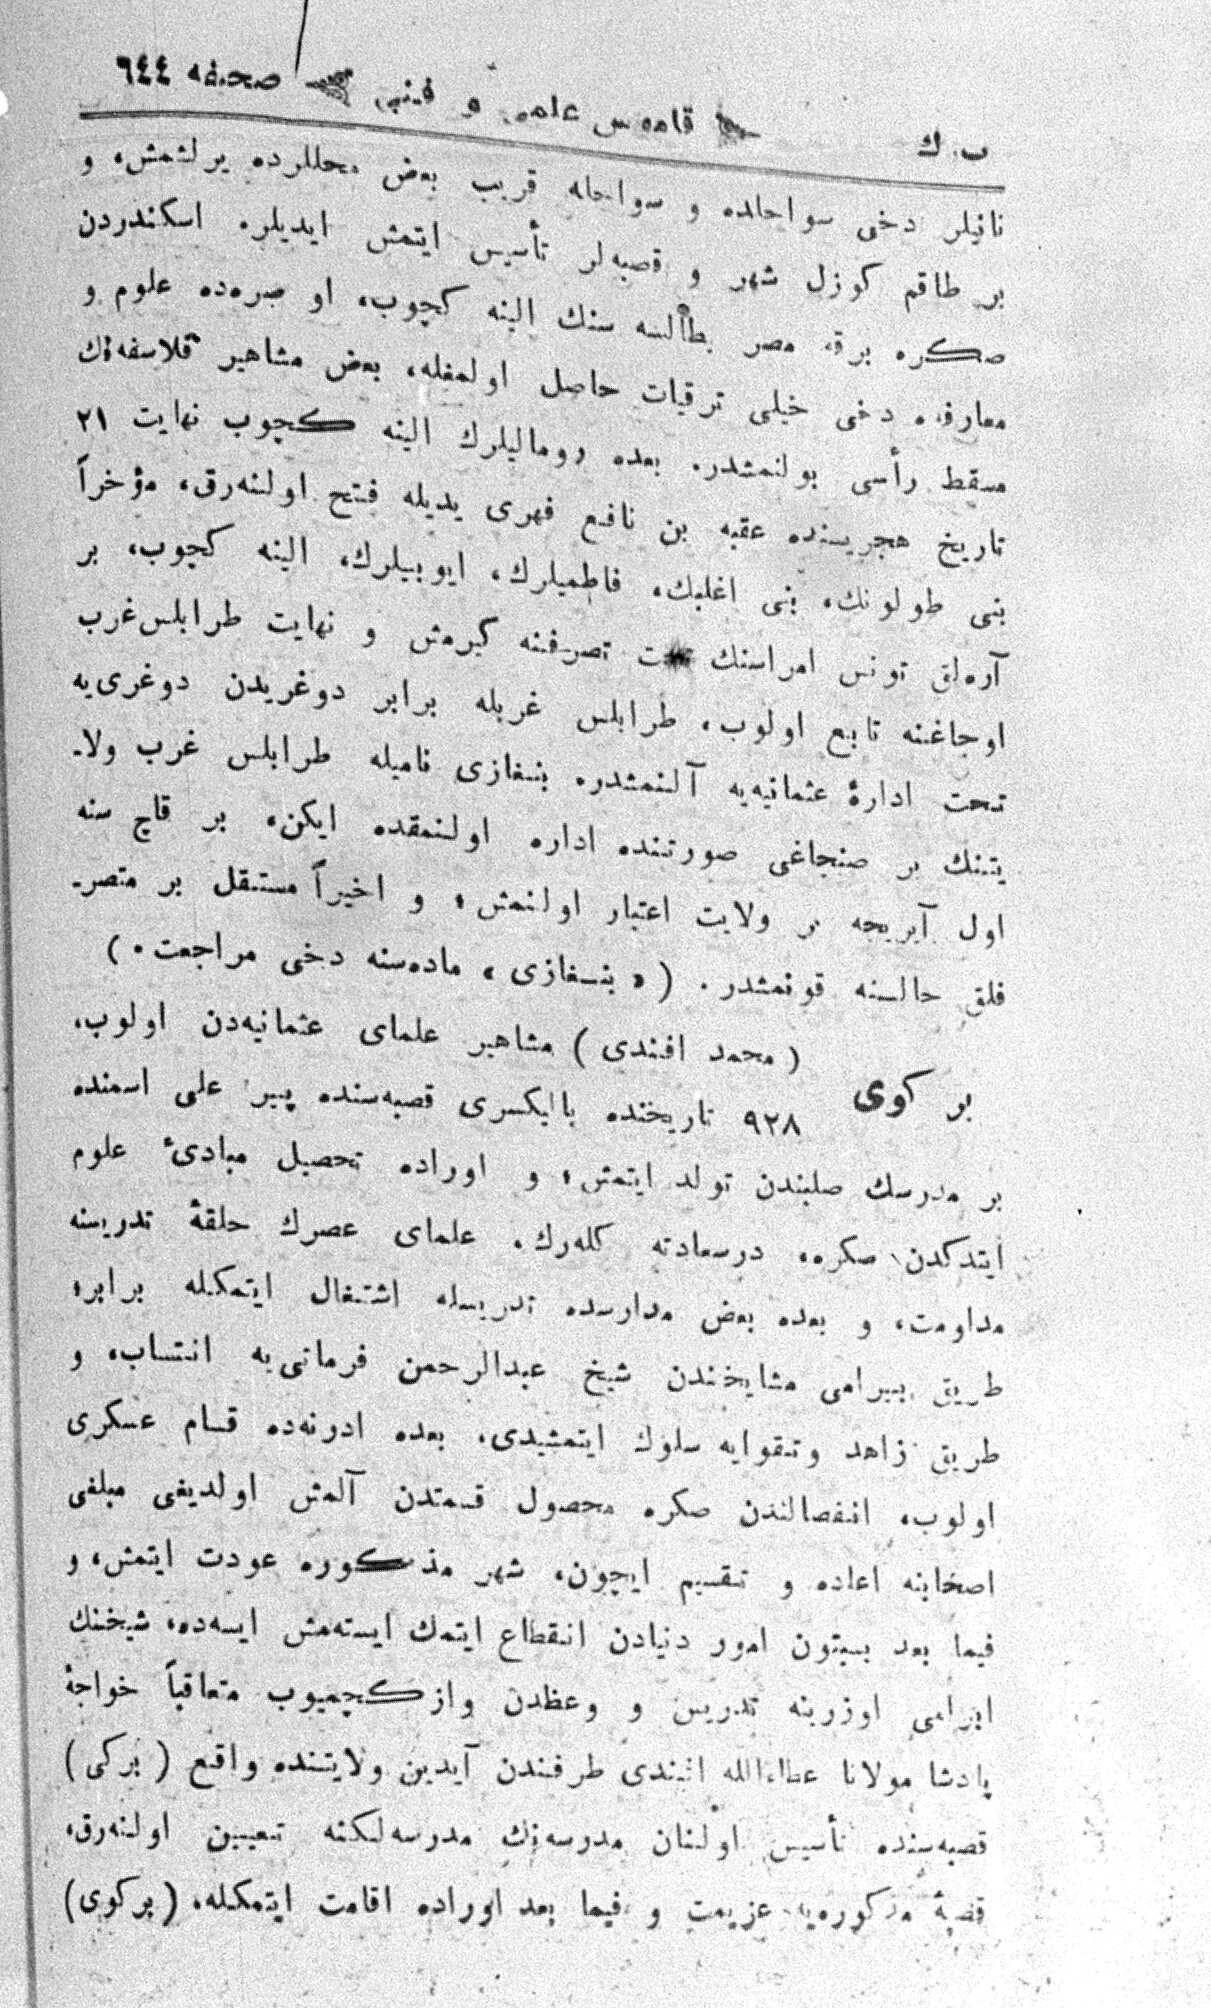 ب. ك
قاموس علمی و فنی
صحيفه ٦٤٤
نانيلر دخی سواحلده و سواحله قريب بعض محللرده يرلشمش، و
بر طاقم كوزل شهر و قصبه‌لر تأسيس ايتمش ايديلر. اسكندردن
صكره برقه مصر بطالسه سنك الينه كچوب، او صره‌ده علوم و
معارفه دخی خيلی ترقيات حاصل اولمغله، بعض مشاهير فلاسفه‌نك
مسقط رأسی بولنمشدر. بعده روماليلرك الينه كچوب نهايت ٢١
تاريخ هجريسنده عقبه بن نافع فهری يديله فتح اولنه‌رق، مؤخراً
بنی طولونك، بنی اغلبك، فاطميلرك، ايوبيلرك، الينه كچوب، بر
آره‌لق تونس امراسنك تحت تصرفنه كيرمش و نهايت طرابلس‌غرب
اوجاغنه تابع اولوب، طرابلس غربله برابر دوغريدن دوغری‌يه
تحت ادارۀ عثمانيه‌يه آلنمشدر. بنغازی ناميله طرابلس غرب ولا-
يتنك بر صنجاغی صورتنده اداره اولنمقده ايكن، بر قاچ سنه
اول آيريجه بر ولايت اعتبار اولنمش، و اخيراً مستقل بر متصر-
فلق حالنه قونمشدر. ( « بنغازی » ماده‌سنه دخی مراجعت. )
بركوی ( محمد افندی ) مشاهير علمای عثمانيه‌دن اولوب،
٩٢٨ تاريخنده باليكسری قصبه‌سنده پير علی اسمنده
بر مدرسك صلبندن تولد ايتمش، و اوراده تحصيل مبادیٔ علوم
ايتدكدن صكره، درسعادته كله‌رك، علمای عصرك حلقۀ تدريسنه
مداومت، و بعده بعض مدارسده تدريسله اشتغال ايتمكله برابر،
طريق بيرامی مشايخندن شيخ عبدالرحمن قرمانی‌يه انتساب، و
طريق زاهد وتقوايه سلوك ايتمشيدی. بعده ادرنه‌ده قسام عسكری
اولوب، انفصالندن صكره محصول قسمتدن آلمش اولديغی مبلغی
اصخابنه اعاده و تقسيم ايچون، شهر مذكوره عودت ايتمش، و
فيما بعد بسبتون امور دنيادن انقطاع ايتمك ايسته‌مش ايسه‌ده، شيخنك
ابرامی اوزرينه تدريس و وعظدن وازكچميوب متعاقباً خواجۀ
پادشا مولانا عطاءالله افندی طرفندن آيدين ولايتنده واقع ( بركی )
قصبه‌سنده تأسيس اولنان مدرسه‌نك مدرسه‌لكنه تعيين اولنه‌رق،
قصبۀ مذكوره‌يه عزيمت و فيما بعد اوراده اقامت ايتمكله، ( بركوی )